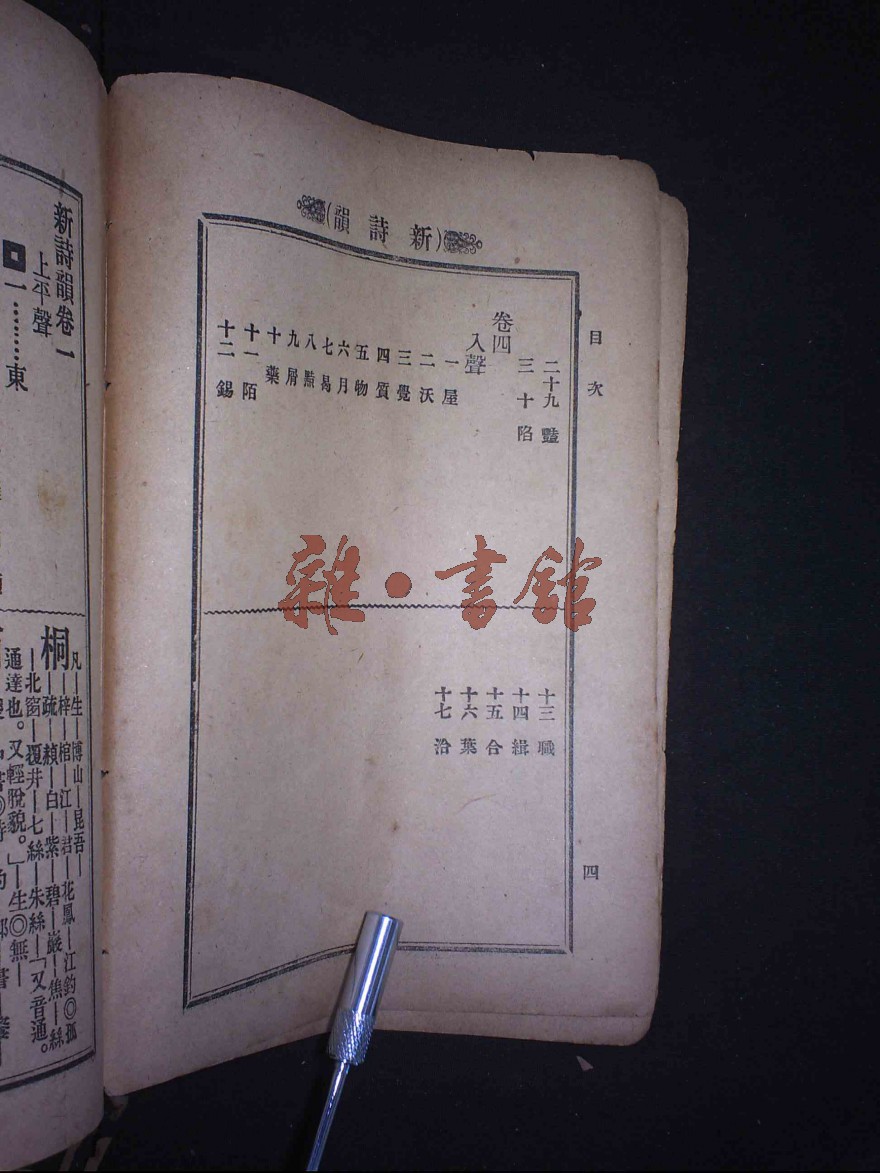 新詩韻
目次
二十九 豔
三十 陷
卷四
入聲
一 屋
二 沃
三 覺
四 質
五 物
六 月
七 曷
八 黠
九 屑
十 藥
十一 陌
十二 錫
十三 職
十四 緝
十五 合
十六 葉
十七 洽
四
雜·書館
新詩韻卷一
上平聲
一………東
桐
凡—生 博山—昆吾—
—梓—棺—江—君—北鳳—江鈞◎孤
—疏—頳—白—紫—碧—巖—焦—絲
—北窗—覆井—七絲—朱絲—「又音通。
通達也。又輕脫貌。」—生◎無—